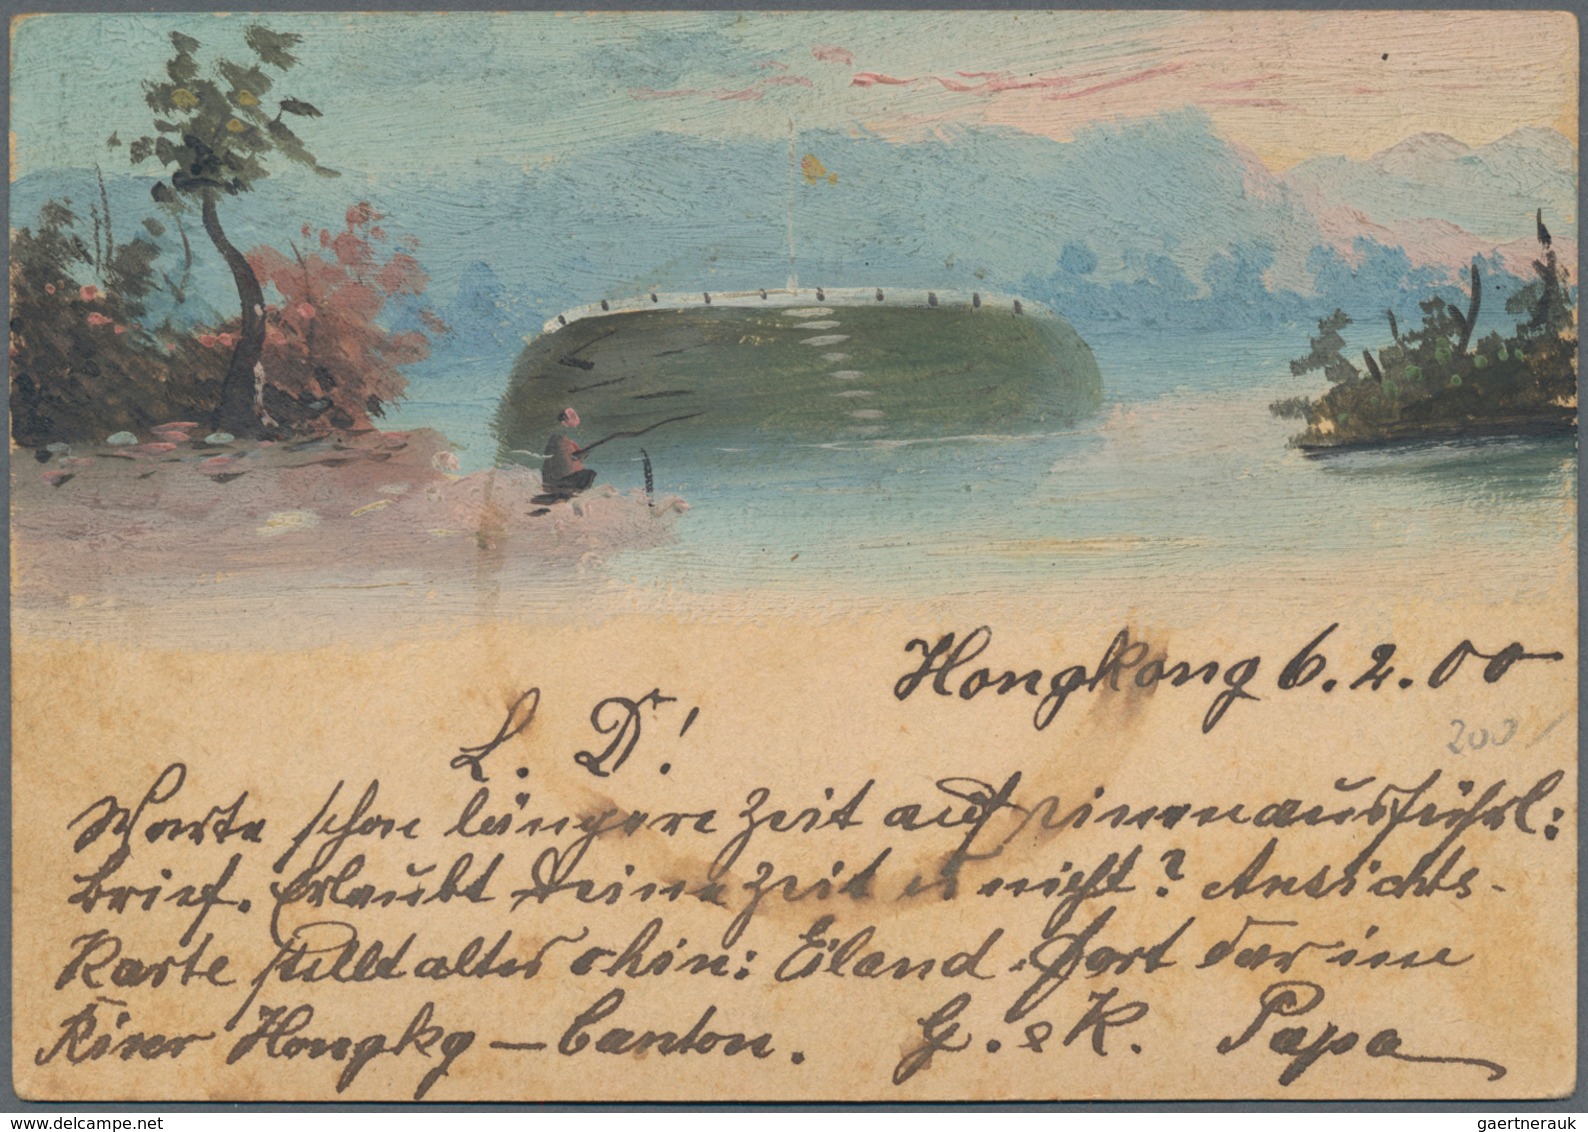 Hongkong 6.2.00
200
L. D!
Warte schon längere Zeit auf einen ausführl:
Brief. Erlaubt Deine Zeit es nicht? Ansichts-
Karte stellt altes chin: Eiland-Fort dar im
River Hongkg – Canton. G. & K. Papa
delcampe.net
gaertnerauk